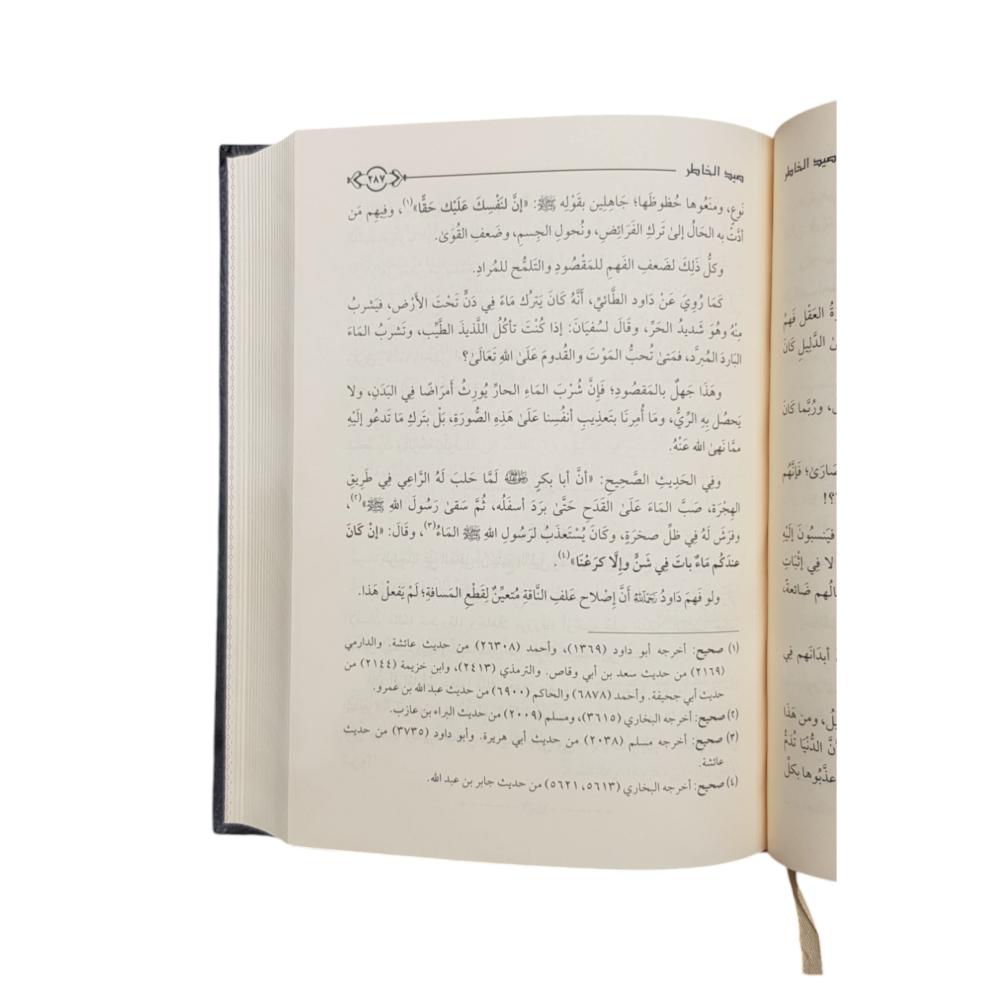 صيد الخاطر
٢٨٧
نَوعٍ، ومنَعُوها حُظوظَها؛ جَاهِلِين بقَولِه ﷺ: «إنَّ لنَفْسِكَ عَلَيْك حَقًّا»(١)، وفِيهِم مَن
أدَّتْ به الحَالُ إلىٰ تَركِ الفَرائِضِ، ونُحولِ الجِسمِ، وضَعفِ القُوَىٰ.
وكلُّ ذَلِكَ لضَعفِ الفَهمِ للمَقْصُودِ والتَلمُّح للمُرادِ.
كَمَا رُوِيَ عَنْ دَاود الطَّائيِّ، أَنَّهُ كَانَ يَترُك مَاءً فِي دَنٍّ تَحْتَ الأَرْضِ، فيَشربُ
مِنْهُ وهُوَ شَديدُ الحَرِّ، وقَالَ لسُفيَانَ: إذا كُنْتَ تأكُلُ اللَّذيذَ الطَّيِّب، وتَشْربُ المَاءَ
البَاردَ المُبرَّد، فمَتىٰ تُحبُّ المَوْتَ والقُدومَ عَلَىٰ اللهِ تَعَالَىٰ؟
وهَذَا جَهلٌ بالمَقصُودِ؛ فَإِنَّ شُرْبَ المَاءِ الحارِّ يُورِثُ أمرَاضًا فِي البَدَنِ، ولا
يَحصُل بِهِ الرِّيُّ، ومَا أُمِرنَا بتَعذِيبِ أنفُسِنا عَلَىٰ هَذِهِ الصُّورَةِ، بَلْ بتَركِ مَا تَدعُو إلَيْهِ
ممَّا نَهىٰ الله عَنْهُ.
وفِي الحَدِيثِ الصَّحِيحِ: «أنَّ أبا بكرٍ رضي الله عنه لَمَّا حَلبَ لَهُ الرَّاعِي فِي طَرِيقِ
الهِجْرَة، صَبَّ المَاءَ عَلَىٰ القَدَحِ حَتَّىٰ بَردَ أسفَلُه، ثُمَّ سَقىٰ رَسُولَ اللهِ ﷺ»(٢)،
وفرَشَ لَهُ فِي ظلِّ صَخرَةٍ، وكَانَ يُسْتَعذَبُ لرَسُولِ اللهِ ﷺ المَاءُ(٣)، وقَالَ: «إنْ كَانَ
عندَكُم مَاءٌ باتَ فِي شَنٍّ وإلَّا كرَعْنَا»(٤).
ولو فَهمَ دَاودُ رَحِمَهُ اللهُ أَنَّ إصْلاح عَلفِ النَّاقةِ مُتعيِّنٌ لِقَطْعِ المَسافةِ؛ لَمْ يَفعلْ هَذا.
(١) صحيح: أخرجه أبو داود (١٣٦٩)، وأحمد (٢٦٣٠٨) من حديث عائشة. والدارمي
(٢١٦٩) من حديث سعد بن أبي وقاص. والترمذي (٢٤١٣)، وابن خزيمة (٢١٤٤) من
حديث أبي جحيفة. وأحمد (٦٨٧٨) والحاكم (٦٩٠٠) من حديث عبد الله بن عمرو.
(٢) صحيح: أخرجه البخاري (٣٦١٥)، ومسلم (٢٠٠٩) من حديث البراء بن عازب.
(٣) صحيح: أخرجه مسلم (٢٠٣٨) من حديث أبي هريرة. وأبو داود (٣٧٣٥) من حديث
عائشة.
(٤) صحيح: أخرجه البخاري (٥٦١٣، ٥٦٢١) من حديث جابر بن عبد الله.
صيد الخاطر
العَقْل فَهمُ
الدَّلِيل كَانَ
، ورُبَّما كَانَ
؛ فَإنَّهُم
؟!
فيَنسبُونَ إلَيْهِ
لا فِي إثْبَاتِ
ضَائعةً،
أبدَانَهم فِي
، ومن هَذَا
الدُّنْيَا تُذمُّ
عذَّبُوها بكلِّ